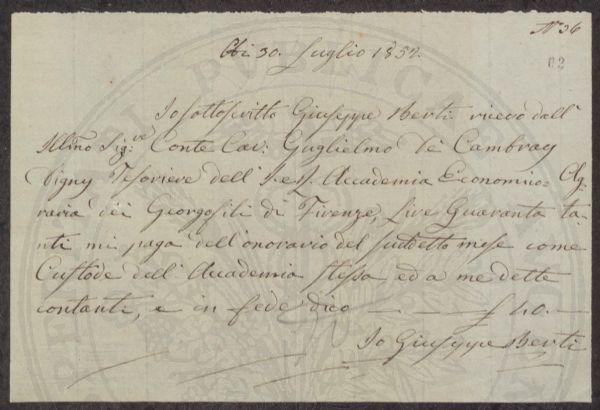 N° 36
82
Adi 30. Luglio 1852.
Io sottoscritto Giuseppe Berti ricevo dall'
Illmo Sig:re Conte Cav: Guglielmo De Cambray
Digny Tesoriere dell' I. e R. Accademia Economico= Ag=
raria dei Georgofili di Firenze, Lire Quaranta ta=
nti mi paga dell'onorario del suddetto mese come
Custode dell' Accademia stessa, ed a me dette
contanti, e in fede dico £ 40.
Io Giuseppe Berti